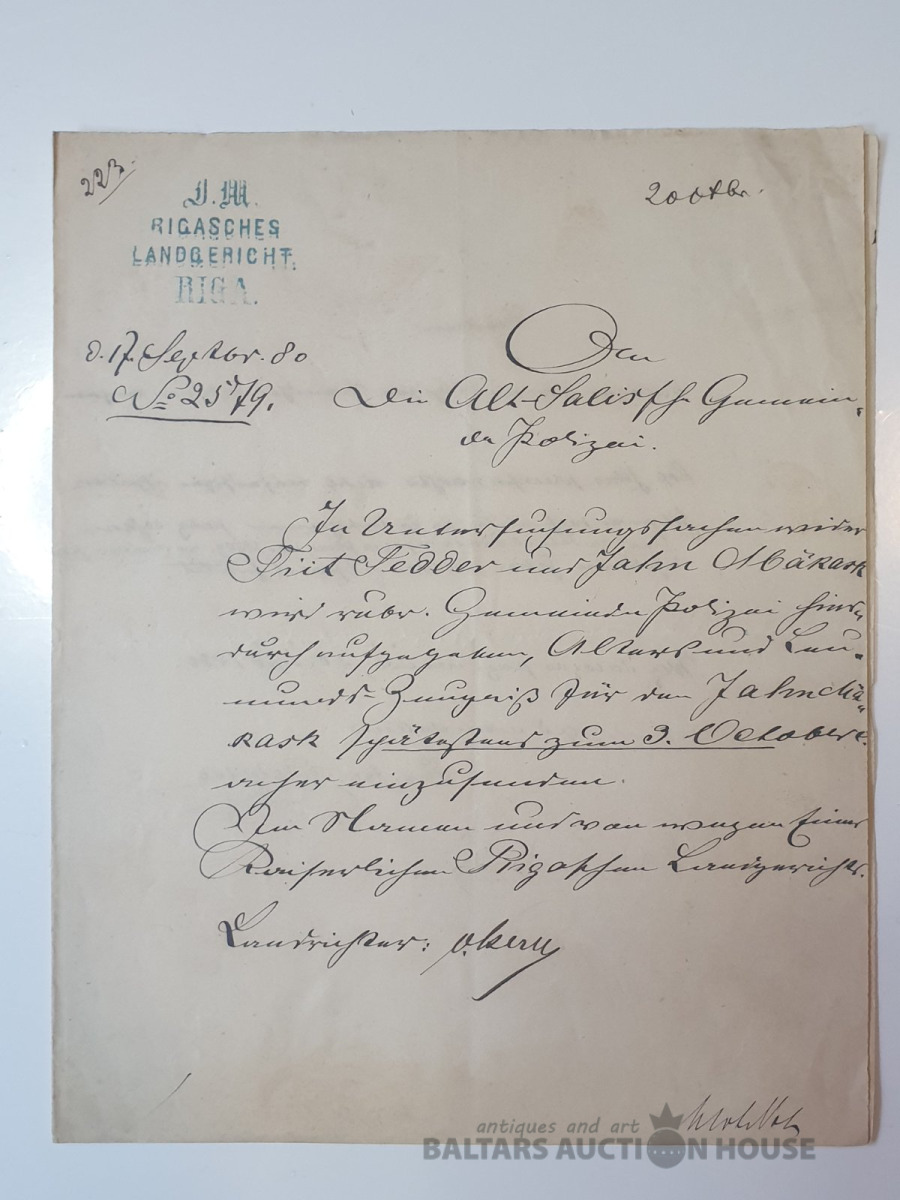 223.
20 Octbr.
J. M.
RIGASCHES
LANDGERICHT.
RIGA.
d. 17. Septbr. 80
No 2579.
An
die Alt-Salissche Gemein-
de Polizei.
In Untersuchungssachen wider
Tiit Tedder und Jahn Mäkask
wird rubr. Gemeinde Polizei hier-
durch aufgegeben, Alters und Leu-
munds-Zeugniß für den Jahn Mä-
kask spätestens zum 3. October c.
anher einzusenden.
Im Namen und von wegen Eines
Kaiserlichen Rigaschen Landgerichts.
Landrichter:
antiques and art
BALTARS AUCTION HOUSE